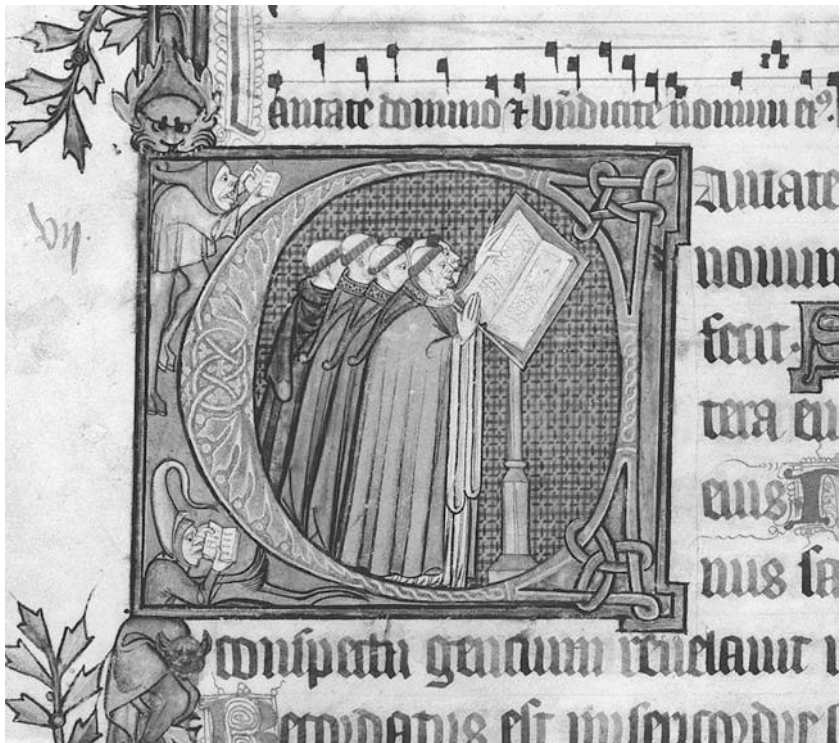 antate domino ⁊ bn̄dicite nomini eiꝰ
Antate
vij.
nouum
fecit. S
tera eiu
eius N
nus sa
conspectu gencium reuelauit
Recordatus est misericordie